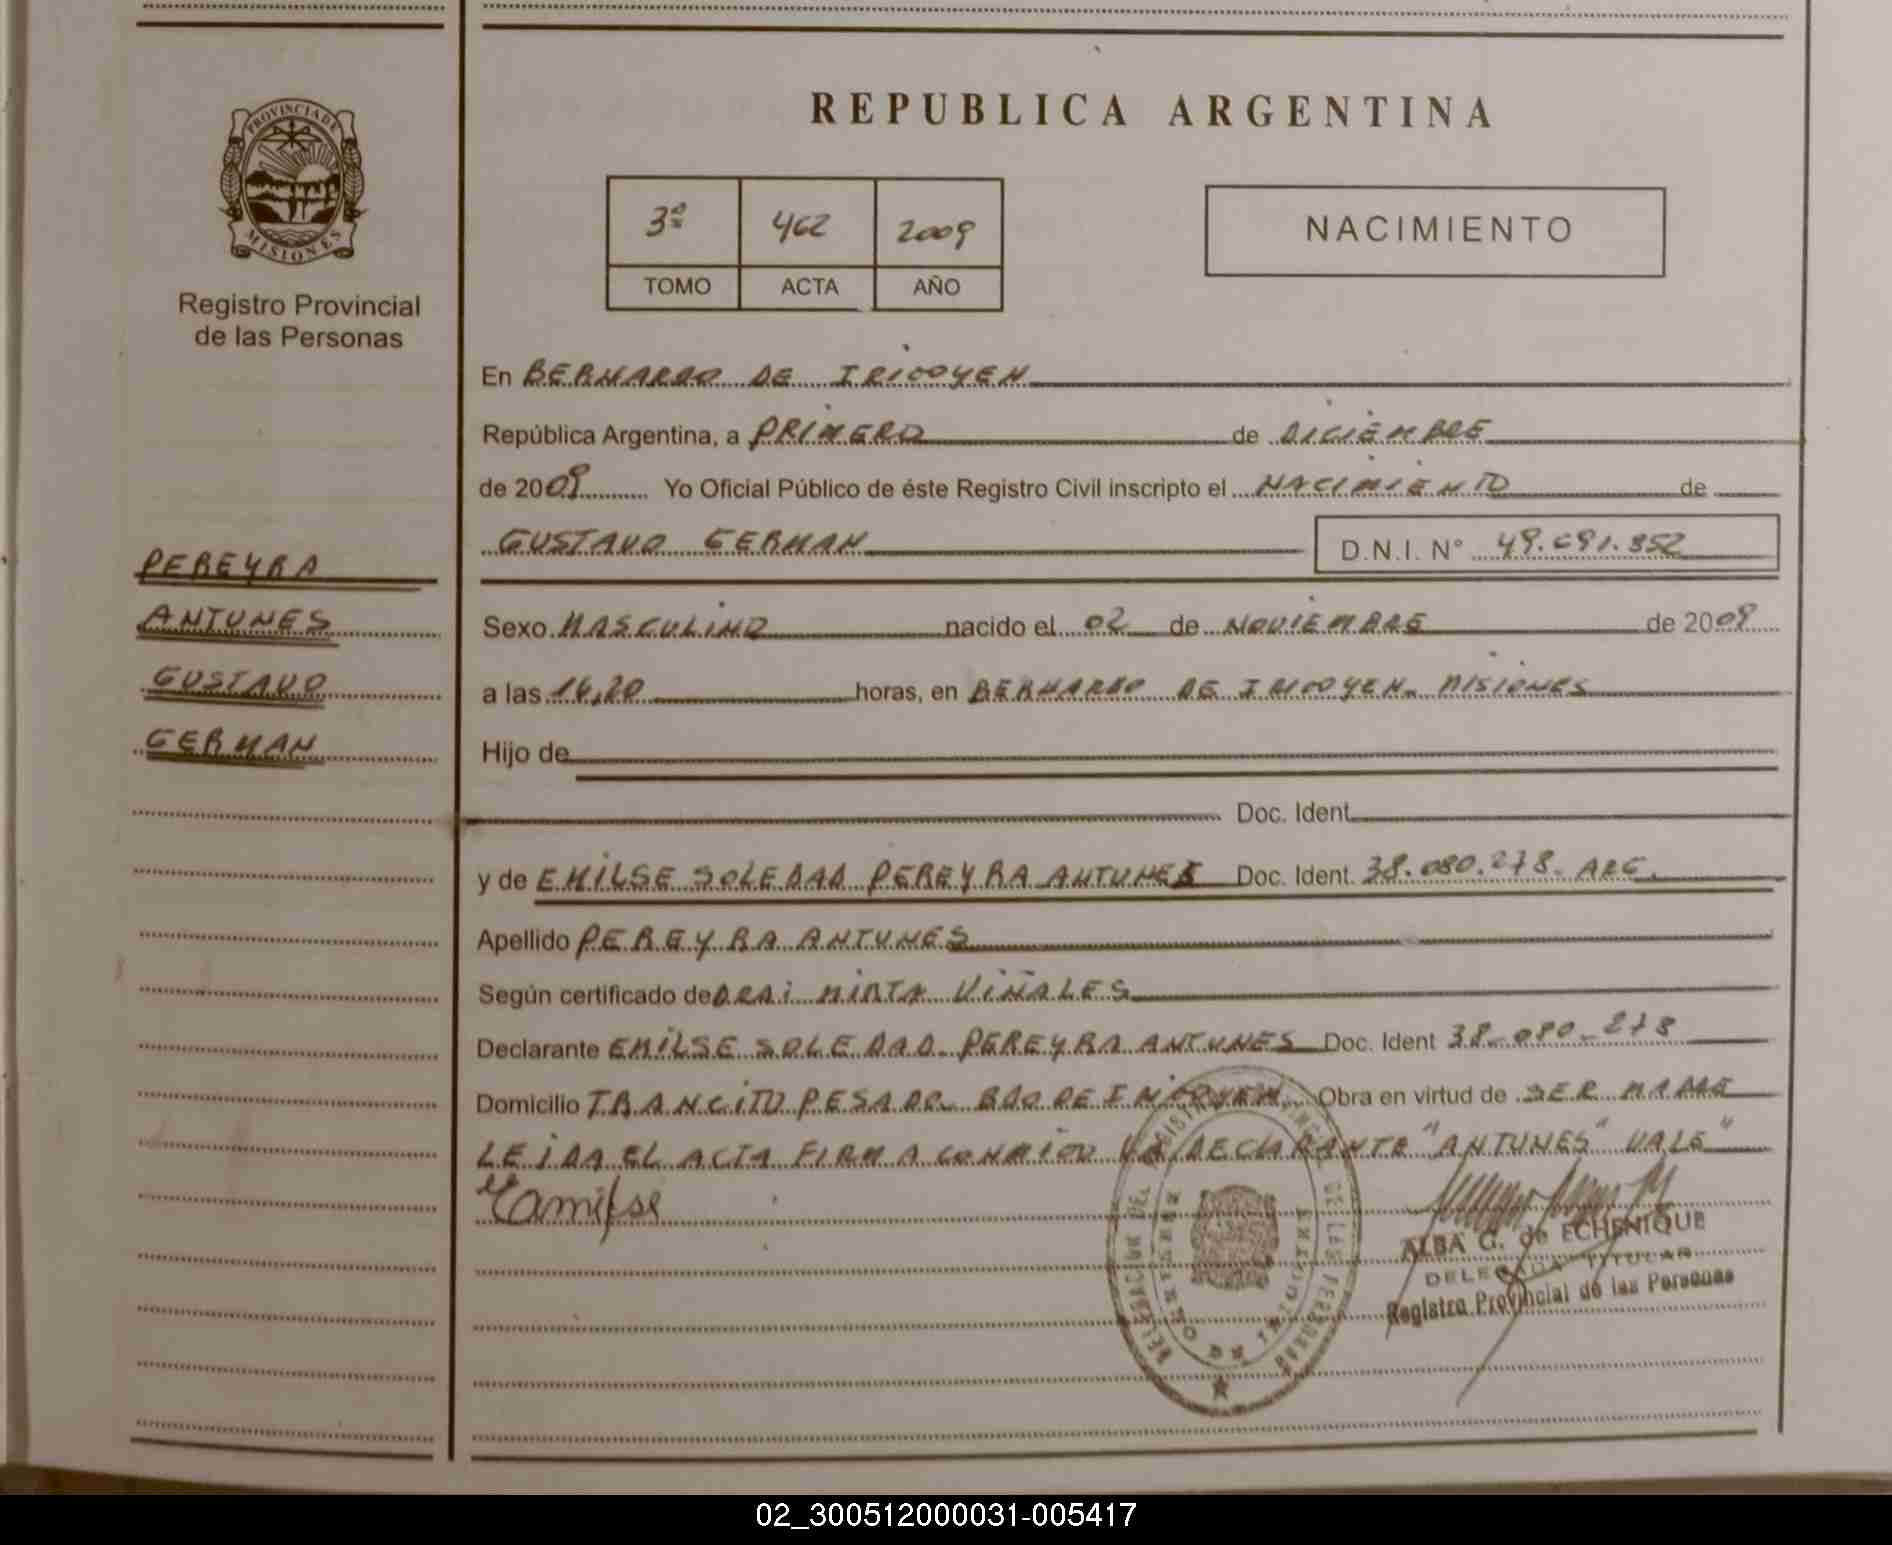 REPUBLICA ARGENTINA
PROVINCIA DE MISIONES
Registro Provincial
de las Personas
3º 462 2009
TOMO ACTA AÑO
NACIMIENTO
En BERNARDO DE IRIGOYEN
República Argentina, a PRIMERO de DICIEMBRE
de 2009 Yo Oficial Público de éste Registro Civil inscripto el NACIMIENTO de
GUSTAVO GERMAN D.N.I. Nº 49.691.352
PEREYRA
ANTUNES
GUSTAVO
GERMAN
Sexo MASCULINO nacido el 02 de NOVIEMBRE de 2009
a las 16,20 horas, en BERNARDO DE IRIGOYEN. MISIONES
Hijo de
Doc. Ident.
y de EMILSE SOLEDAD PEREYRA ANTUNES Doc. Ident. 38.080.278. ARG.
Apellido PEREYRA ANTUNES
Según certificado de DRA: MIRTA VIÑALES
Declarante EMILSE SOLEDAD PEREYRA ANTUNES Doc. Ident 38.080.278
Domicilio TRANCITO PESADO. BDO DE IRIGOYEN. Obra en virtud de SER MADRE
LEIDA EL ACTA FIRMA CONMIGO LA DECLARANTE "ANTUNES" VALE"
ALBA G. de ECHENIQUE
DELEGADA TITULAR
Registro Provincial de las Personas
02_300512000031-005417